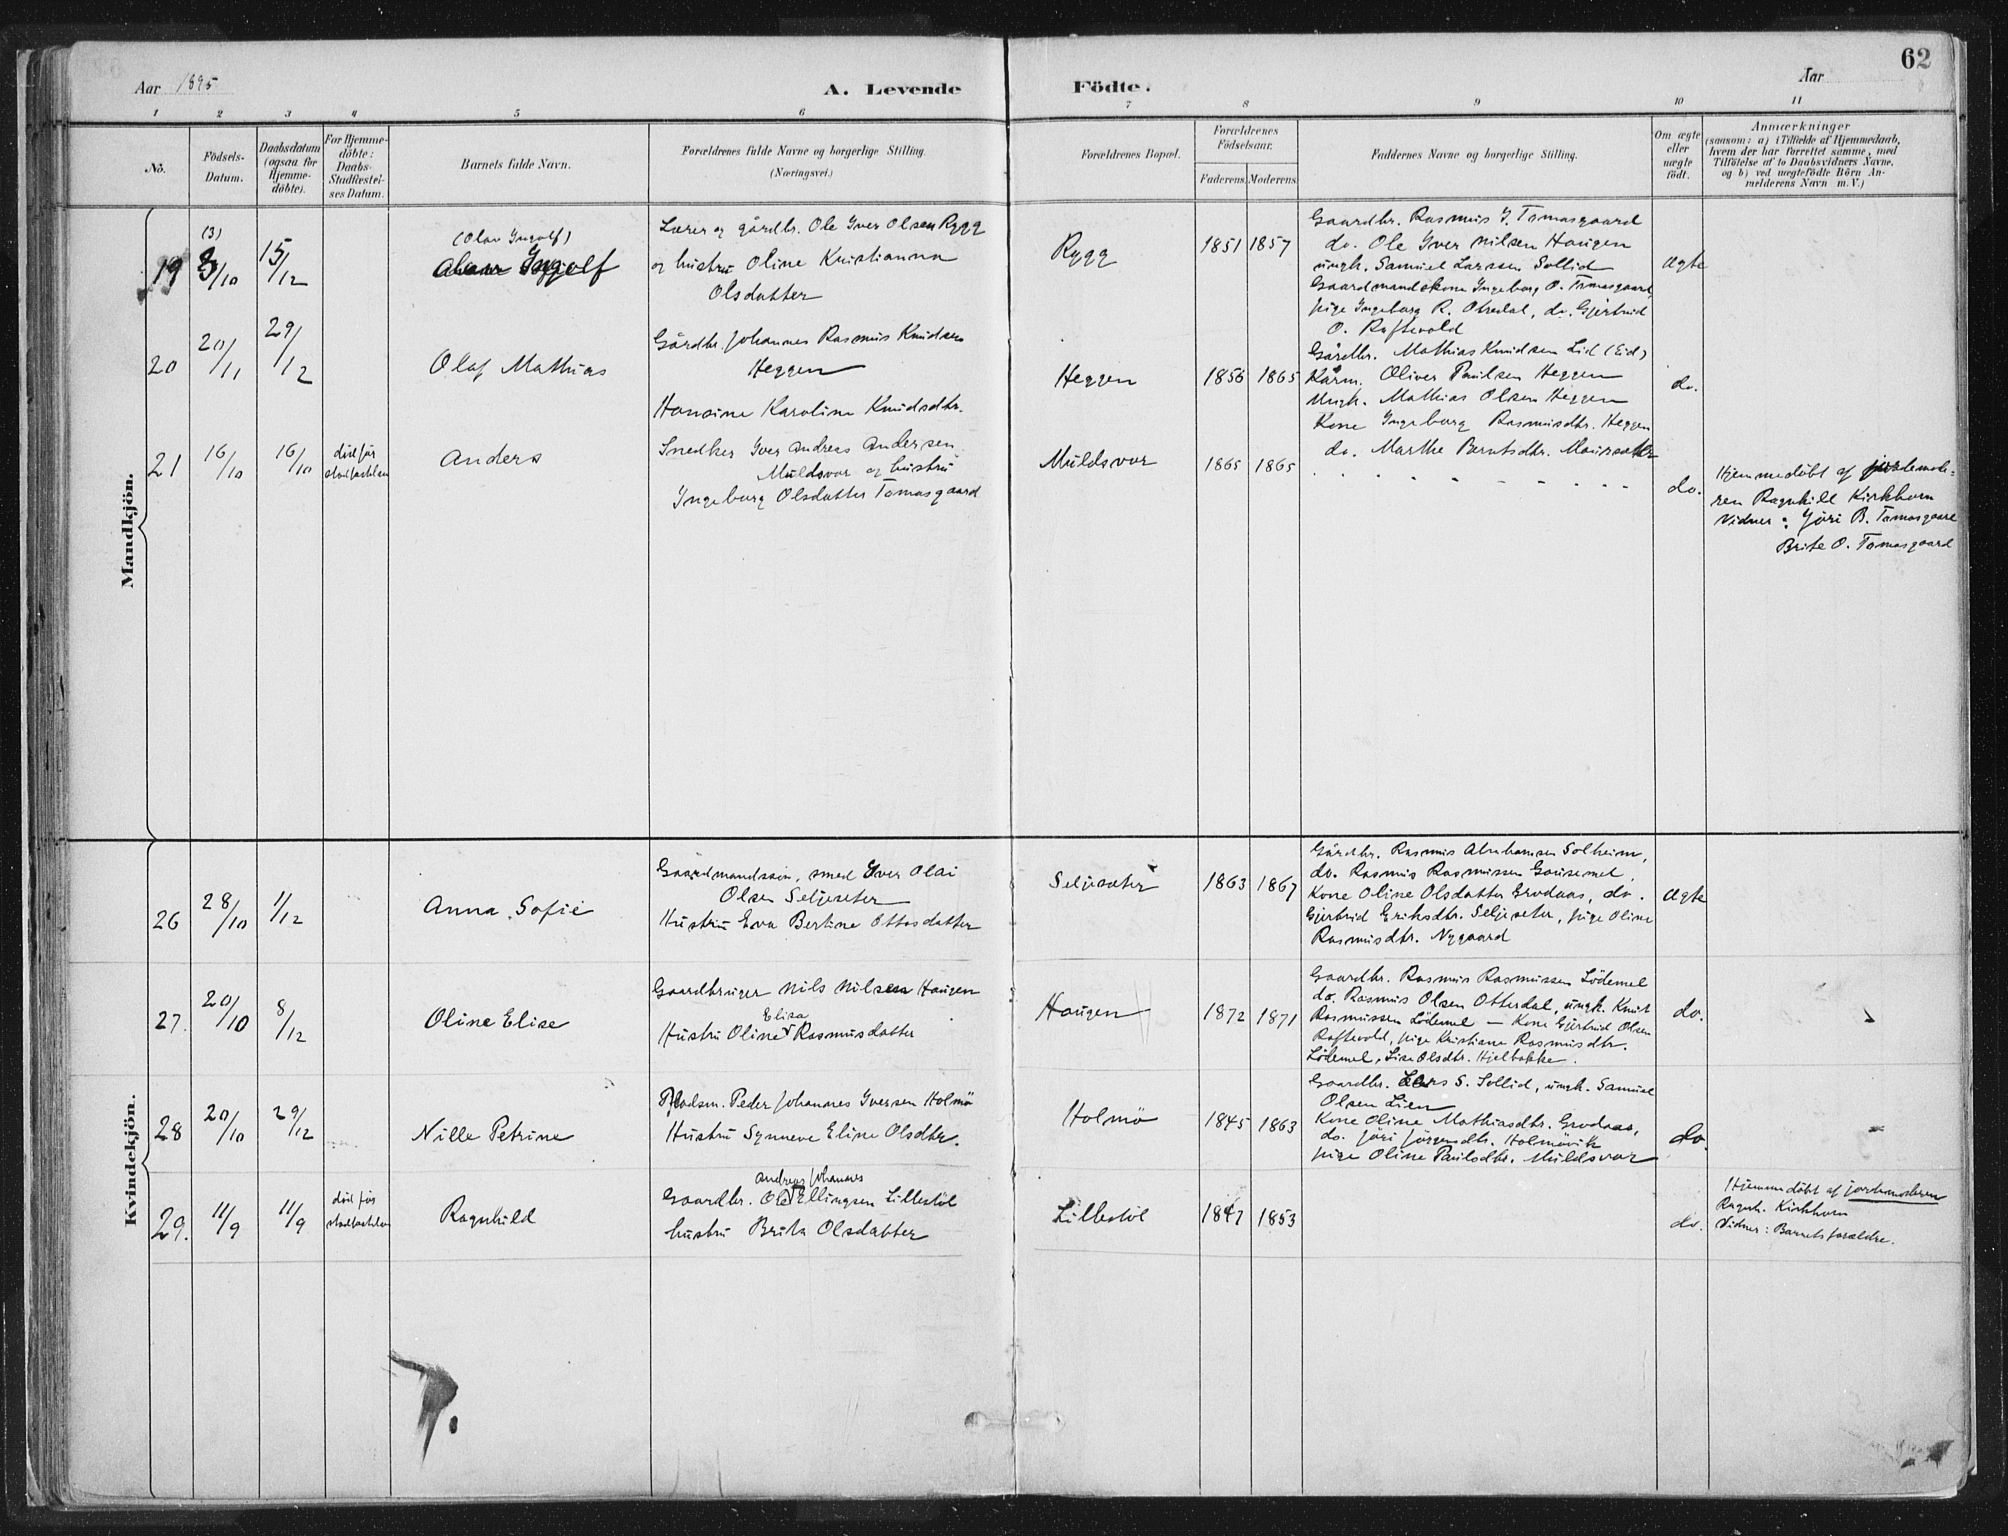 62
Aar 1895
A. Levende
Födte.
Aar
1 2 3 4 5 6 7 8 9 10 11
No.
Födsels-Datum.
Daabsdatum (ogsaa for Hjemme-döbte).
For Hjemme-döbte: Daabs-Stadfæstel-ses Datum.
Barnets fulde Navn.
Forældrenes fulde Navne og borgerlige Stilling.
(Næringsvei.)
Forældrenes Bopæl.
Forældrenes Födselsaar.
Faderens Moderens
Faddernes Navne og borgerlige Stilling.
Om ægte eller uægte födt.
Anmærkninger
(saasom: a) i Tilfælde af Hjemmedaab,
hvem der har forrettet samme, med
Tilföielse af to Daabsvidners Navne,
og b) ved uægtefödte Börn An-
melderens Navn m. V.)
Mandkjön.
19
(3)
3/10
15/12
(Olav Ingolf)
Ingolf
Lærer og gårdbr. Ole Iver Olsen Rygg
og hustru Oline Kristianna
Olsdatter
Rygg
1851 1857
Gaardbr. Rasmus J. Tomasgaard
do. Ole Iver Nilsen Haugen
ungk. Samuel Larssen Sollid
Gaardmandskone Ingeborg O. Tomasgaard,
pige Ingeborg R. Otredal, do. Gjertrud
O. Raftevold
Ægte
20
20/11
29/12
Olaf Mathias
Gårdbr. Johannes Rasmus Knudsen
Heggen
Hansine Karoline Knudsdtr.
Heggen
1856 1865
Gårdbr. Mathias Knudsen Lid (Eid)
Kårm. Oliver Paulsen Heggen
Ungk. Mathias Olsen Heggen
Kone Ingeborg Rasmusdtr. Heggen
do. Marthe Berntsdtr.
do.
21
16/10
16/10
död för
stadfæstelsen
Anders
Snedker Iver Andreas Andersen
Muldsvor og hustru
Ingeborg Olsdatter Tomasgaard
Muldsvor
1865 1865
- - - - - - - - -
do.
Hjemmedöbt af jordemode-
ren Ragnhild Kirkhorn
Vidner: Jöri B. Tomasgaard
Brite O. Tomasgaard
Kvindekjön.
26
28/10
1/12
Anna Sofie
Gaardmandssön, smed Iver Olai
Olsen Seljeseter
Hustru Eva Bertine Ottosdatter
Seljeseter
1863 1867
Gårdbr. Rasmus Abrahamsen Solheim,
do. Rasmus Rasmussen Gausemel,
Kone Oline Olsdatter Grodaas, do.
Gjertrud Eriksdtr. Seljeseter, pige Oline
Rasmusdtr. Nygaard
Ægte
27.
20/10
8/12
Oline Elise
Gaardbruger Nils Nilsen Haugen
Elisa
Hustru Oline Rasmusdatter
Haugen
1872 1871
Gaardbr. Rasmus Rasmussen Lödemel
do. Rasmus Olsen Otterdal, ungk. Knut
Rasmussen Lödemel — Kone Gjertrud Olsen
Raftevold, pige Kristiane Rasmusdtr.
Lödemel, Lise Olsdtr. Hjelbakke.
do.
28
20/10
29/12
Nille Petrine
Pladsm. Peder Johannes Iversen Holmö
Hustru Synneve Eline Olsdtr.
Holmö
1845 1863
Gaardbr. Lars S. Sollid, ungk. Samuel
Olsen Lien
Kone Oline Mathiasdtr. Grodaas,
do. Jöri Jörgensdtr. Holmövik
pige Oline Paulsdtr. Muldsvor
do
29.
11/9
11/9
död för
stadfæstelsen
Ragnhild
Andreas Johannes
Gaardbr. Ole Ellingsen Lillestöl
hustru Brita Olsdatter
Lillestöl
1847 1853
do.
Hjemmedöbt af jordemoderen
Ragnh. Kirkhorn
Vidner: Barnets forældre.